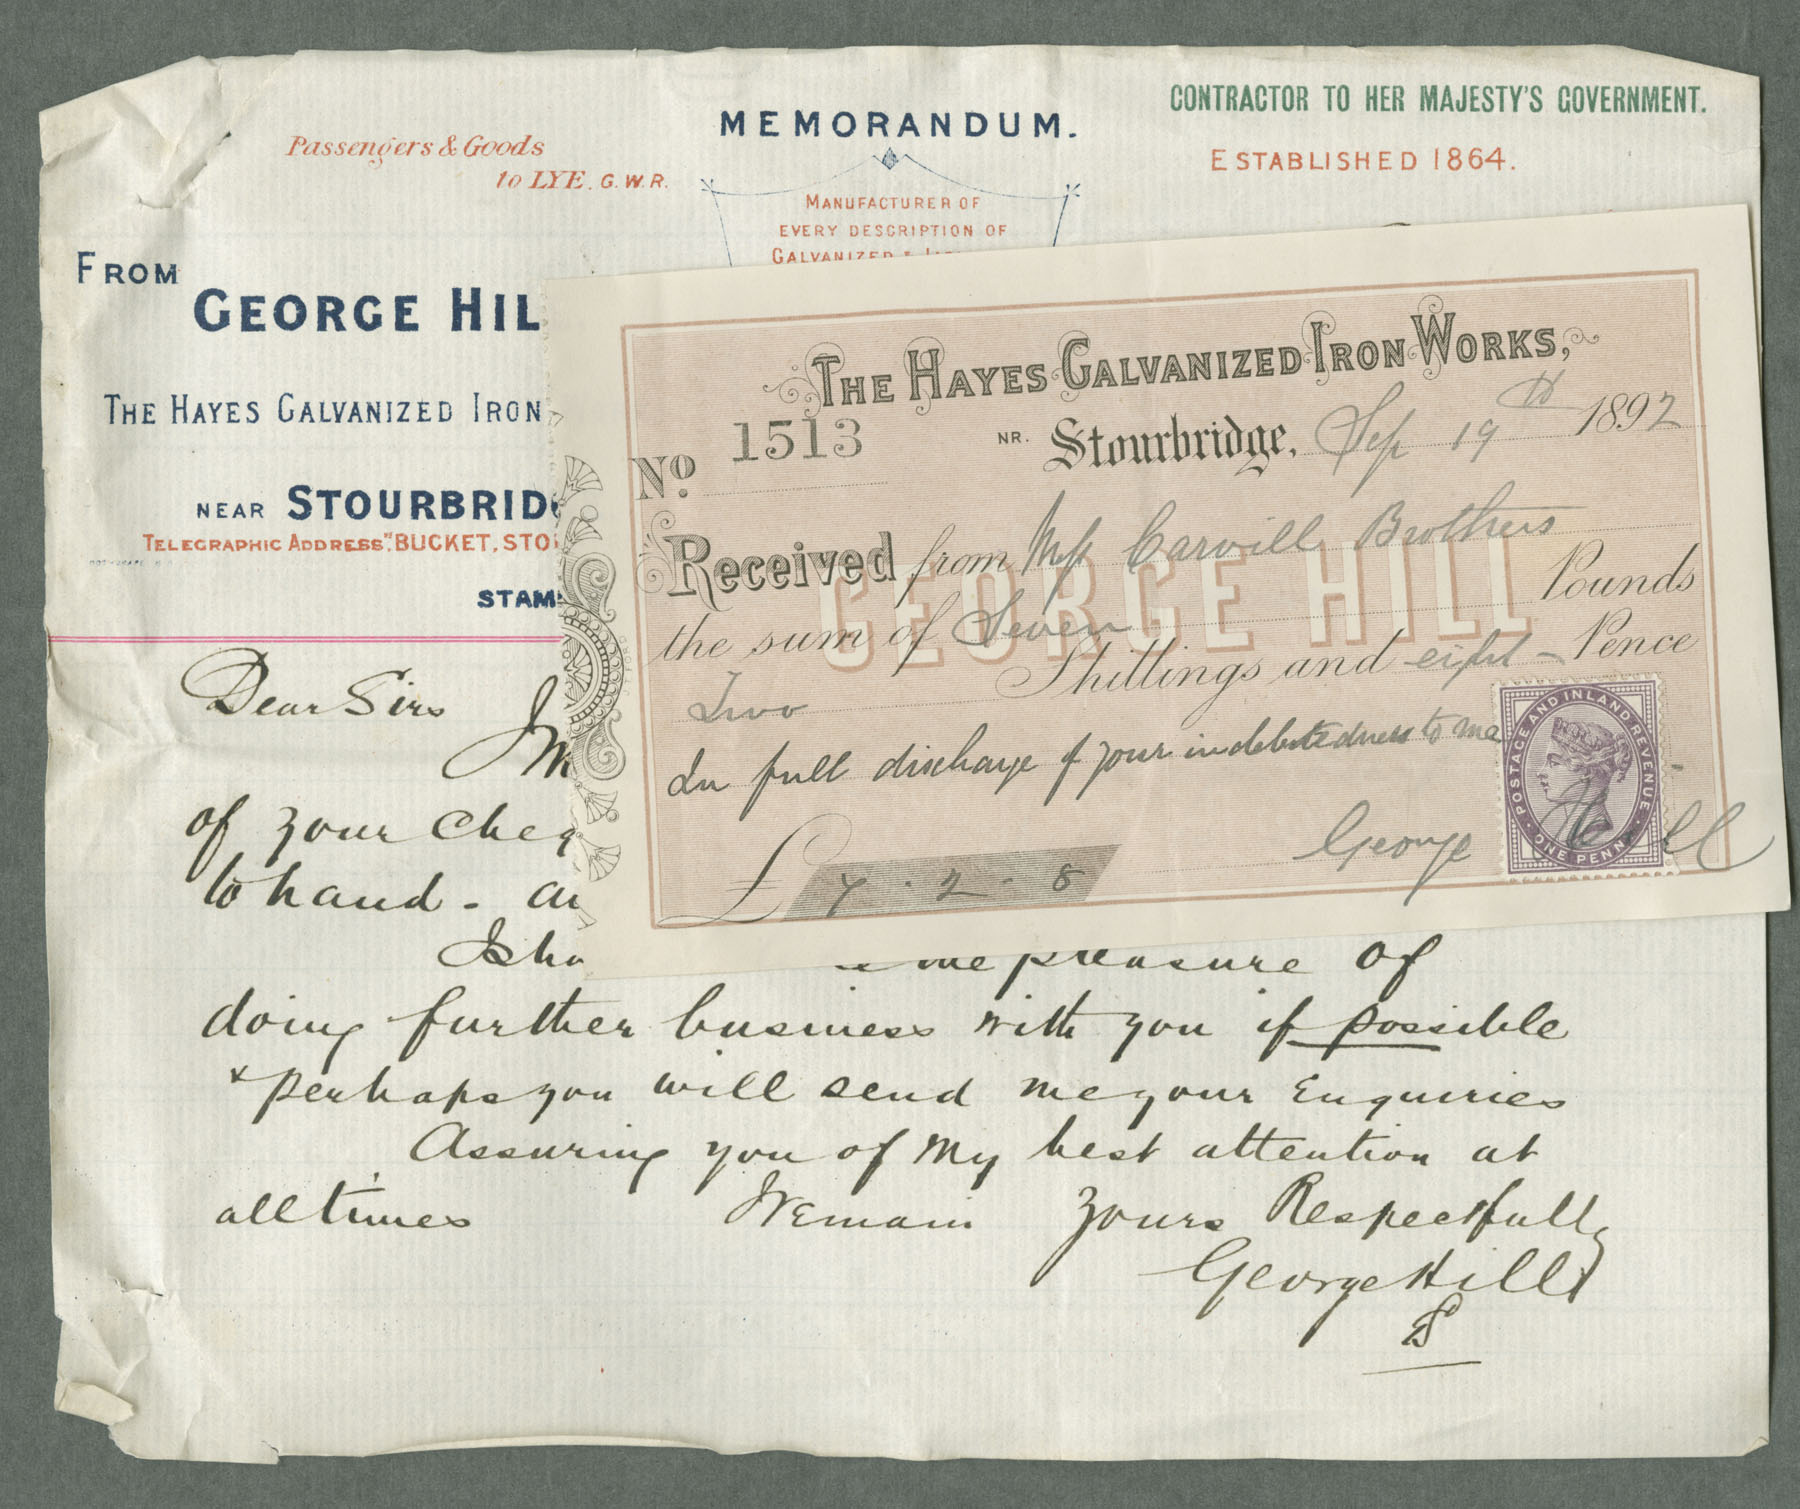 MEMORANDUM.
CONTRACTOR TO HER MAJESTY'S GOVERNMENT.
ESTABLISHED 1864.
Passengers & Goods
to LYE. G.W.R.
MANUFACTURER OF
EVERY DESCRIPTION OF
GALVANIZED &
FROM
GEORGE HIL
THE HAYES GALVANIZED IRON
NEAR STOURBRIDG
TELEGRAPHIC ADDRESS "BUCKET, STO
STAM
Dear Sirs
of your Cheq
to hand - an
I sho
the pleasure of
doing further business with you if possible
& perhaps you will send me your Enquiries
Assuring you of My best attention at
all times I Remain Yours Respectfully
George Hill
THE HAYES GALVANIZED IRON WORKS,
No. 1513
NR. Stourbridge, Sep 19th 1892
Received from Mss Carvill Brothers
GEORGE HILL
the sum of Seven Pounds
Two Shillings and eight - Pence
In full discharge of your indebtedness to me
George Hill
£ 7 . 2 . 8
POSTAGE AND INLAND REVENUE
ONE PENNY